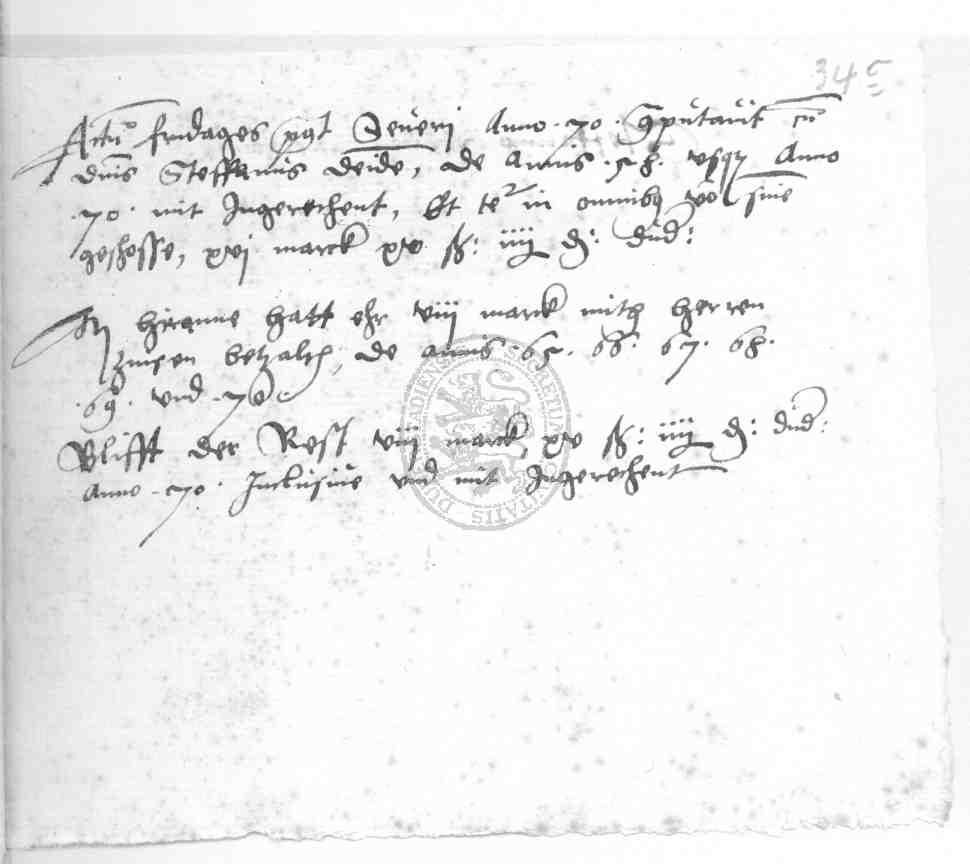 345
Actū fridages pꝰt Seuerj Anno · 70 · ꝯputauit cū
dnīs Steffanus Deide, de Annis · 58 · vsqꝫ Anno
· 70 · mit Ingerechent, Et teᵗ in omnibꝫ vō sine
geschosse, xvj marck xv ß: iiij ₰: dūd:
In hiranne hatt ehr viij marck mith herren
zinsen betzalth, de annis · 65 · 66 · 67 · 68 ·
· 69 · vnd · 70 ·
Blifft der Rest viij marck xv ß: iiij ₰: dūd:
Anno · 70 · Inclusiue vnd mit Ingerechent